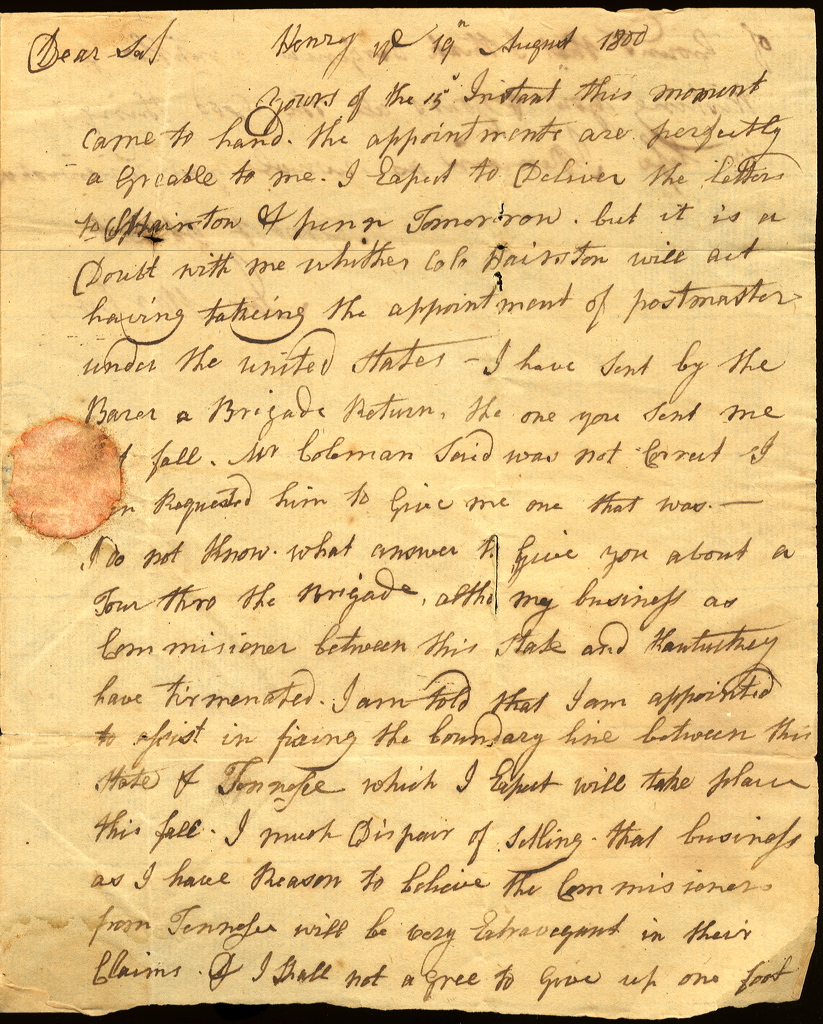 Dear Sir Henry 19th August 1800
Yours of the 15th Instant this moment
came to hand. the appointments are perfectly
agreable to me. I Expect to Deliver the letters
to Hairston & penn Tomorrow. but it is a
Doubt with me whither Colo Hairston will act
having takeing the appointment of postmaster
under the united States - I have sent by the
Barer a Brigade Return, the one you sent me
fall. Mr Coleman Said was not Correct I
Requested him to Give me one that was. —
I do not Know what answer to Give you about a
Tour thro the Brigade, altho my business as
Commisioner between this State and Kentuckey
have tirmenated. I am told that I am appointed
to assist in fixing the boundary line between this
State & Tennessee which I Expect will take place
this fall. I much Dispair of setling that business
as I have Reason to believe the Commisioners
from Tennessee will be very Extravegant in their
Claims. & I Shall not agree to Give up one foot